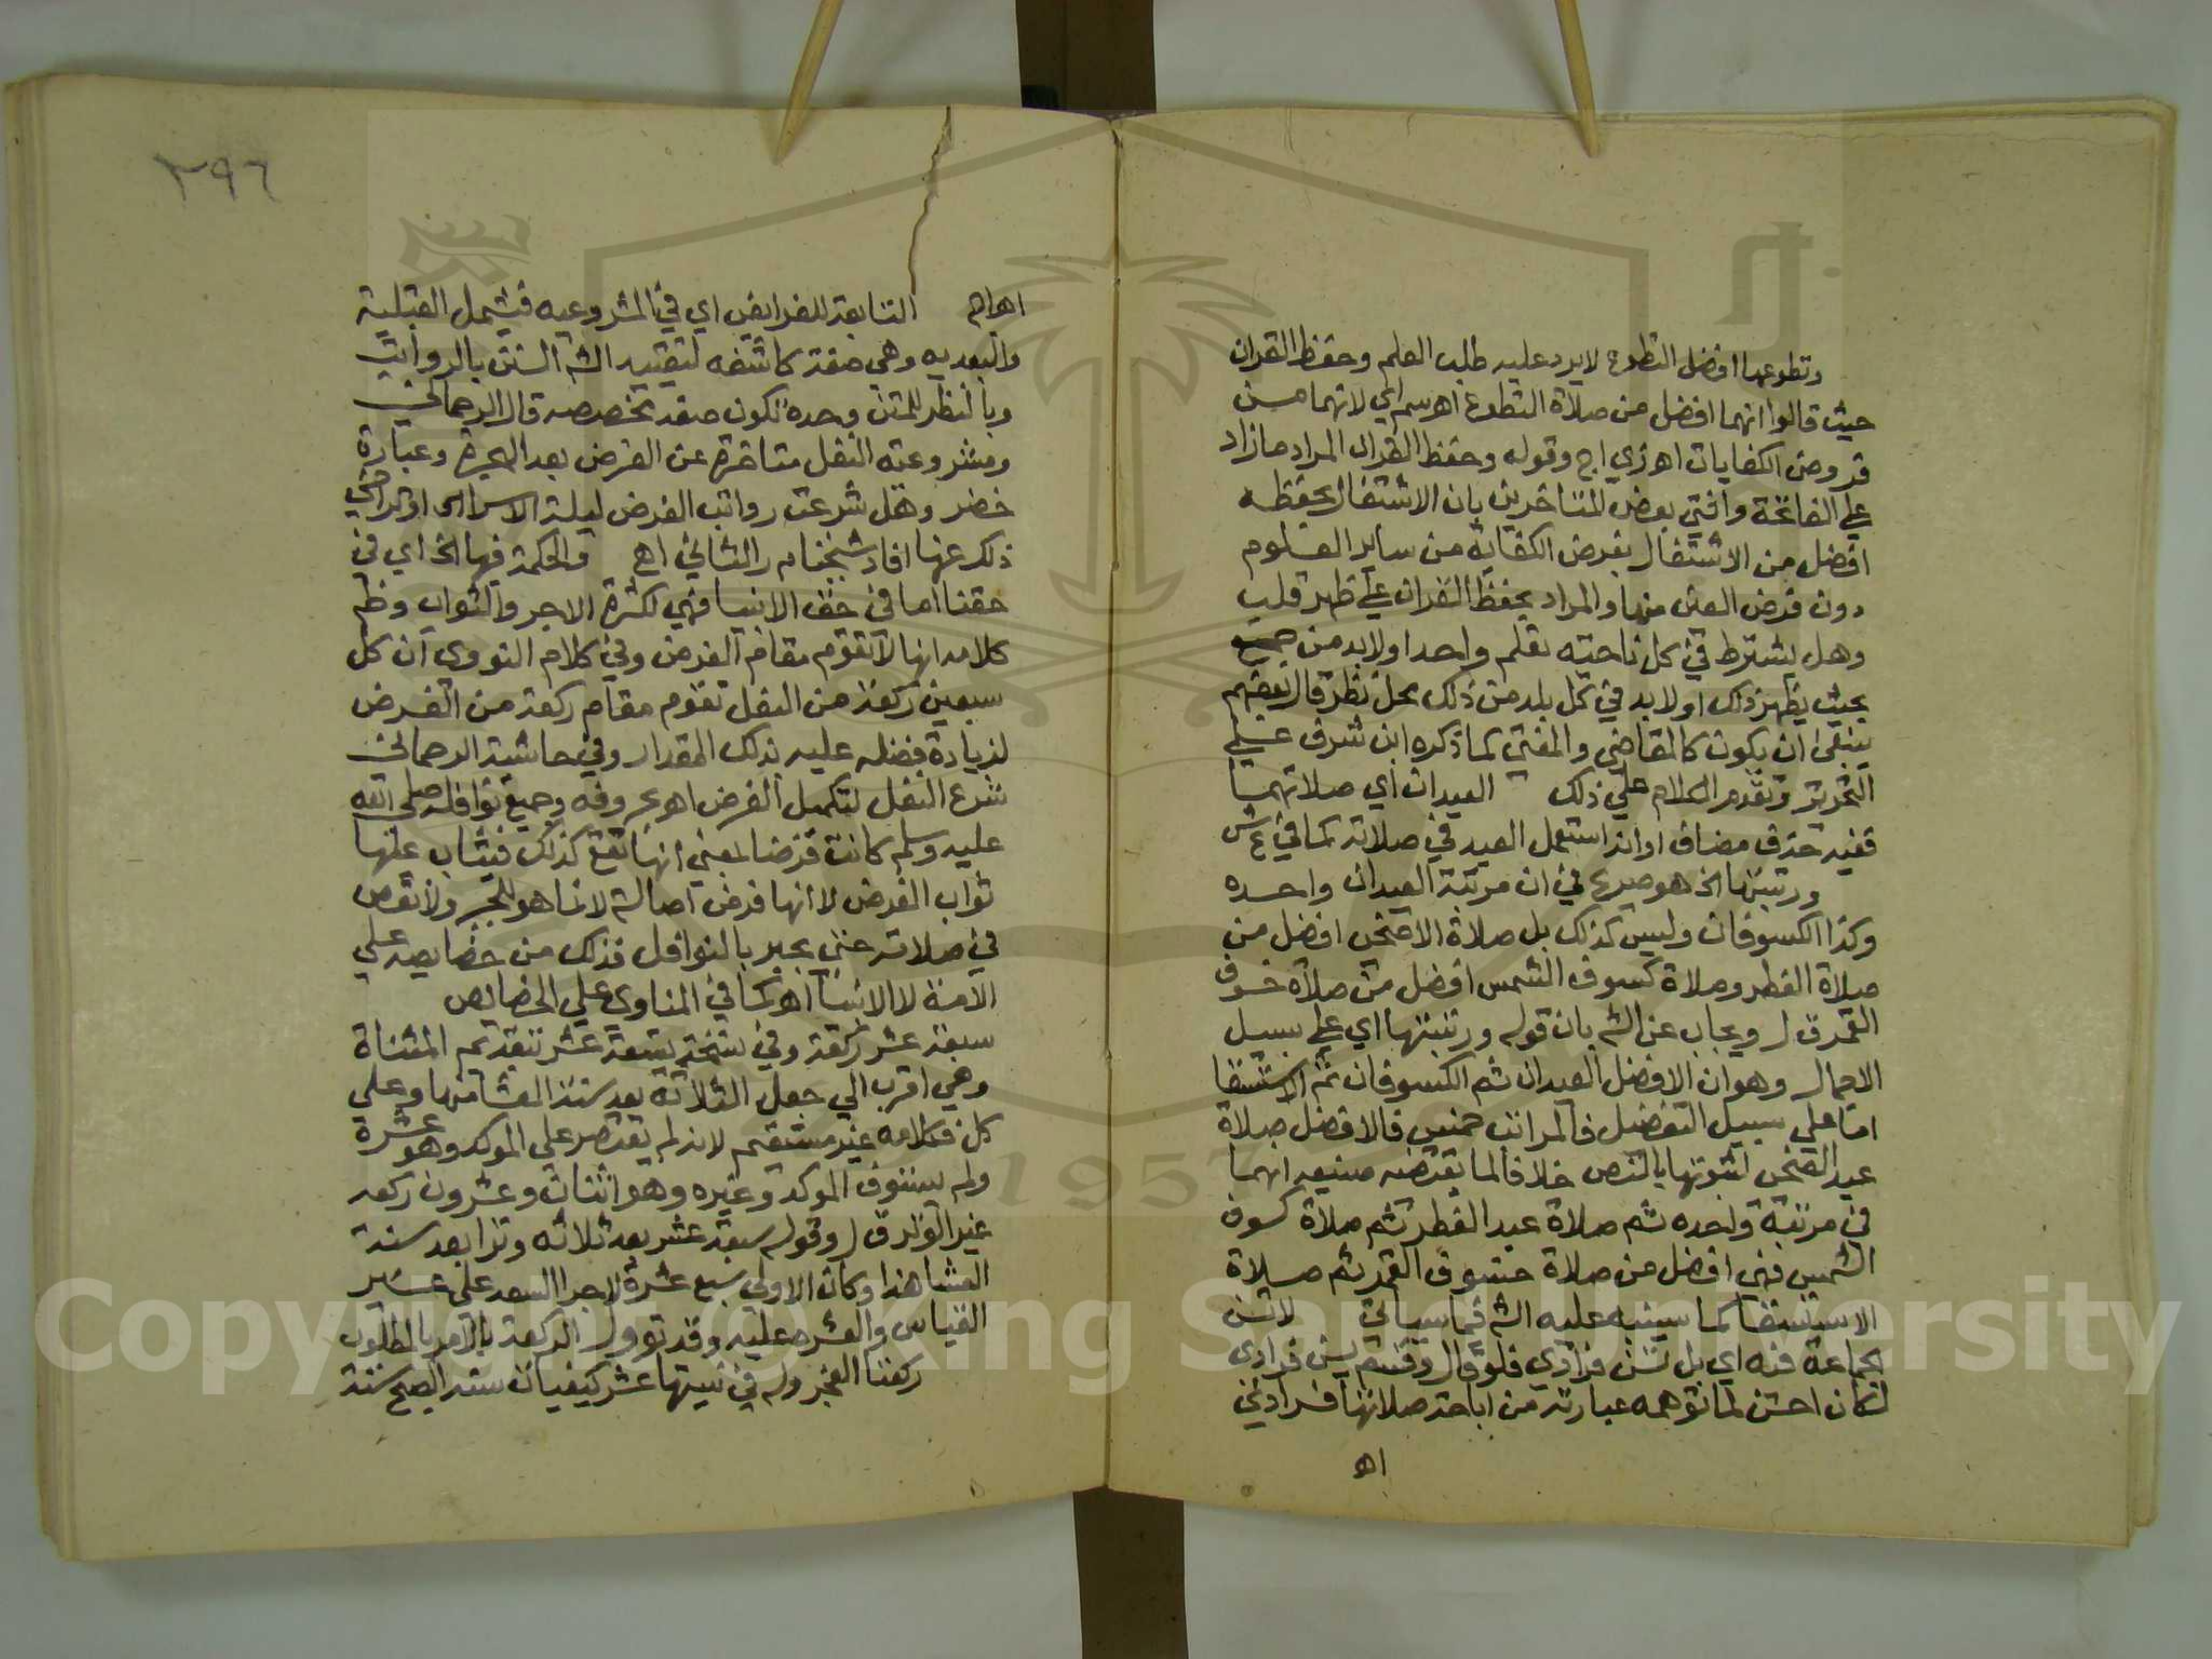 وتطوعها افضل التطوع لا يرد عليه طلب العلم وحفظ القران
حيث قالوا انهما افضل من صلاة التطوع اهـ سم اي لانهما من
فروض الكفايات اهـ زي اج وقوله وحفظ القران المراد ما زاد
علي الفاتحة وافتي بعض المتاخرين بان الاشتغال بحفظه
افضل من الاشتغال بفرض الكفاية من ساير العلوم
دون فرض العين منها والمراد بحفظ القران علي ظهر قلب
وهل يشترط في كل ناحيته تعلم واحد اولا بد من جمع
بحيث يظهر ذلك اولا بد في كل بلد من ذلك محل نظر قال بعضهم
ينبغي ان يكون كالقاضي والمفتي كما ذكره ابن شرف علي
التحرير وتقدم الكلام علي ذلك العيدان اي صلاتهما
ففيه حذف مضاف او انه استعمل العيد في صلاته كما في ع ش
ورتبتها الخ هو صريح في ان مرتبة العيدان واحده
وكذا الكسوفان وليس كذلك بل صلاة الاضحى افضل من
صلاة الفطر وصلاة كسوف الشمس افضل من صلاة خسوف
القمر ق ل ويجاب عن الشه بان قوله ورتبتها اي علي سبيل
الاجمال وهو ان الافضل العيدان ثم الكسوفان ثم الاستسقا
اما علي سبيل التفضيل فالمراتب خمس فالافضل صلاة
عيد الضحى لثبوتها بالنص خلافا لما يقتضيه صنيعه انهما
في مرتبة واحده ثم صلاة عيد الفطر ثم صلاة كسوف
الشمس فهي افضل من صلاة خسوف القمر ثم صلاة
الاستسقا كما سينبه عليه الشه فيما سياتي لا تسن
جماعة فيه اي بل تسن فرادي فلو قال وقسم يسن فرادى
لكان احسن لما توهمه عبارته من اباحة صلاتها فرادي
اهـ
٣٩٦
اهـ اج التابعة للفرايض اي في المشروعيه فيشمل القبلية
والبعديه وهي صفة كاشفه لتقييد الشه السنن بالرواتب
وبالنظر للمتن وحده تكون صفة مخصصه قال الرحماني
ومشروعية النفل متاخرة عن الفرض بعد الهجرة وعبارة
خضر وهل شرعت رواتب الفرض ليلة الاسرا او تراخي
ذلك عنها افاد شيخنا م ر الثاني اهـ والحكمة فيها الخ اي في
حقنا اما في حق الانبيا فهي لكثرة الاجر والثواب وظم
كلامه انها لا تقوم مقام الفرض وفي كلام النووي ان كل
سبعين ركعة من النفل تقوم مقام ركعة من الفرض
لزيادة فضله عليه بذلك المقدار وفي حاشية الرحماني
شرع النفل لتكميل الفرض اهـ بحروفه وجميع نوافله صلى الله
عليه وسلم كانت فرضا بمعني انها تقع كذلك فيثاب عليها
ثواب الفرض لا انها فرض اصالة لانما هو للجبر ولا نقص
في صلاته حتى يجبر بالنوافل فذلك من خصايصه علي
الامة لا الانبيا اهـ كما في المناوي علي الخصايص
سبعة عشر ركعة وفي نسخة تسعة عشر بتقديم المثناة
وهي اقرب الي جعل الثلاثة بعد سنة العشا منها وعلي
كل فكلامه غير مستقيم لانه لم يقتصر على الموكد وهو عشرة
ولم يستوف الموكد وغيره وهو اثنان وعشرون ركعه
غير الوتر ق ل وقوله سبعة عشر بعد ثلاثه وترا بعد سنة
العشا هذا وكان الاولى سبع عشرة لاجرا العدد على غير
القياس والعشر عليه وقد توول الركعة بالامر بالمطلوب
ركعتا الفجر وله في نيتها عشر كيفيات سنة الصبح سنة